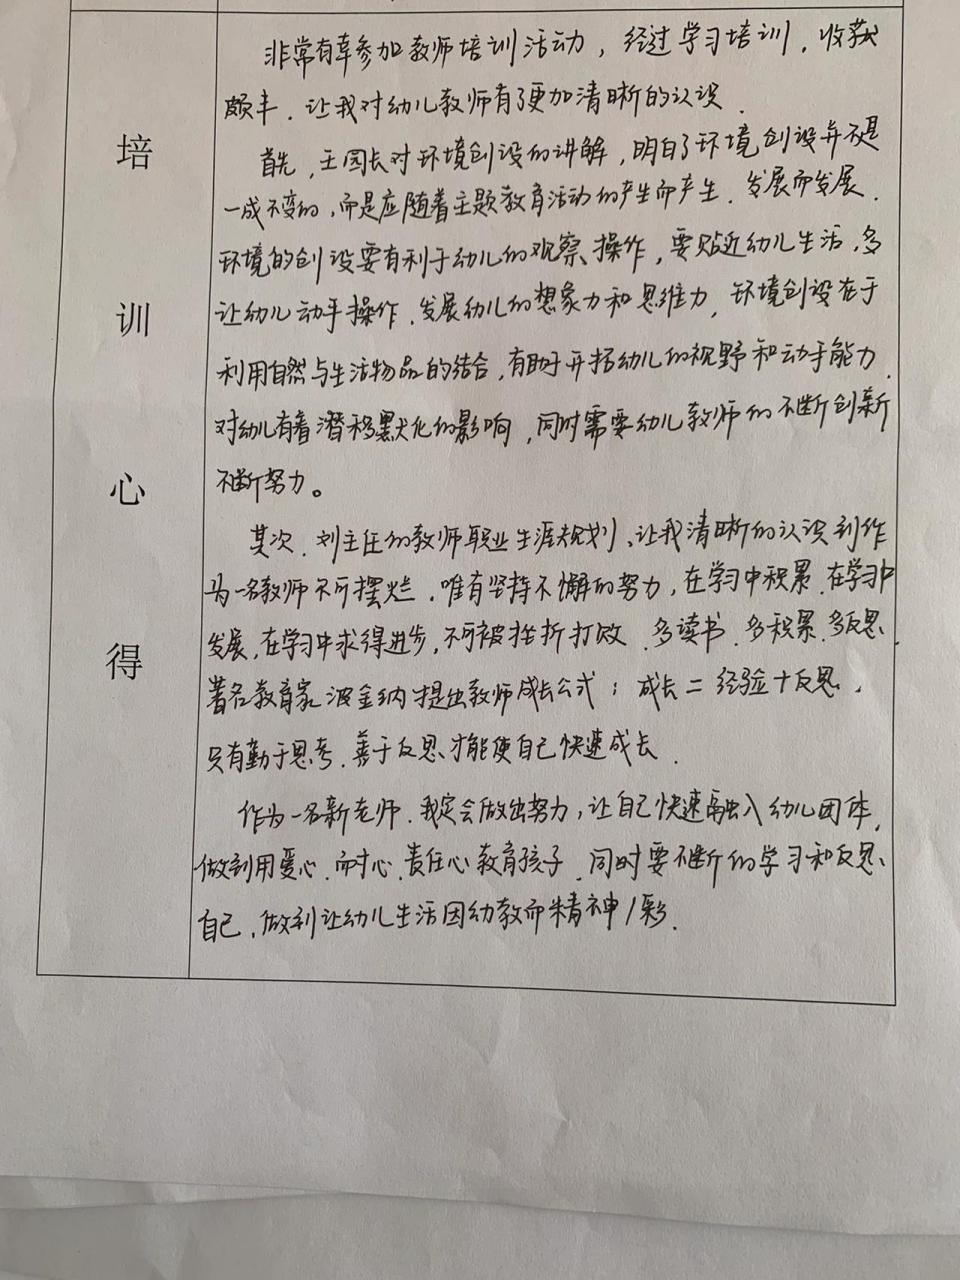 培
训
心
得
非常有幸参加教师培训活动，经过学习培训，收获
颇丰．让我对幼儿教师有了更加清晰的认识．
首先，王园长对环境创设的讲解，明白了环境创设并不是
一成不变的，而是应随着主题教育活动的产生而产生．发展而发展．
环境的创设要有利于幼儿的观察、操作，要贴近幼儿生活，多
让幼儿动手操作．发展幼儿的想象力和思维力，环境创设在于
利用自然与生活物品的结合，有助于开括幼儿的视野和动手能力．
对幼儿有着潜移默化的影响，同时需要幼儿教师的不断创新
不断努力。
其次．刘主任的教师职业生涯规划、让我清晰的认识到作
为一名教师不可摆烂．唯有坚持不懈的努力，在学习中积累．在学习中
发展，在学习中求得进步，不可被挫折打败．多读书．多积累．多反思．
著名教育家波金纳提出教师成长公式：成长＝经验＋反思．
只有勤于思考．善于反思才能使自己快速成长．
作为一名新老师．我定会做出努力，让自己快速融入幼儿团体，
做到用爱心．耐心．责任心教育孩子．同时要不断的学习和反思、
自己，做到让幼儿生活因幼教而精神彩．